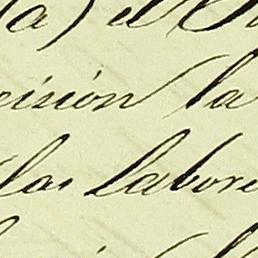 a) el
cisión la
las labore